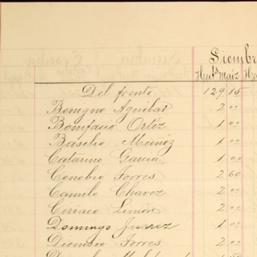 Siembr
Maiz
Del frente 129 15
Benigno Aguilar 2 00
Bonifacio Ortiz 1 00
Basilio Muñoz 1 00
Catarino Garcia 1 00
Cenobio Torres 2 60
Camilo Chavoz 2 00
Ciriaco Limón 2 00
Domingo Juarez 1 00
Dionisio Torres 2 00